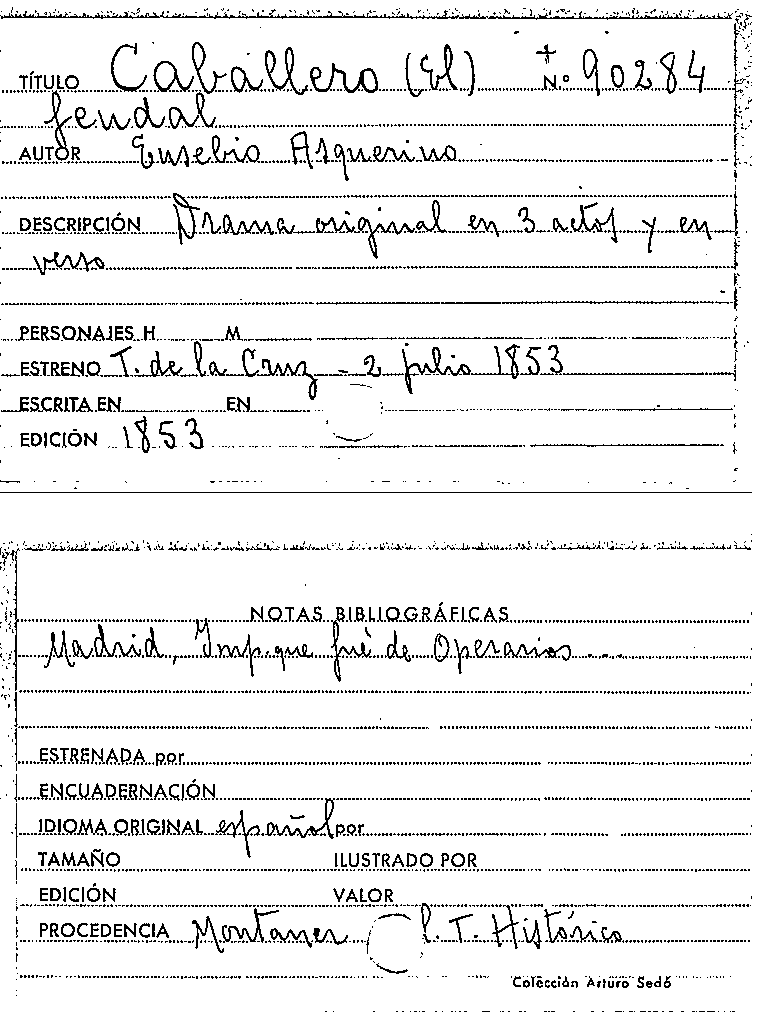 TÍTULO Caballero (El) + N.º 90284
feudal
AUTOR Eusebio Asquerino
DESCRIPCIÓN Drama original en 3 actos y en
verso
PERSONAJES H M
ESTRENO T. de la Cruz - 2 julio 1853
ESCRITA EN EN
EDICIÓN 1853
NOTAS BIBLIOGRÁFICAS
Madrid, Imp. que fué de Operarios ...
ESTRENADA por
ENCUADERNACIÓN
IDIOMA ORIGINAL español por
TAMAÑO ILUSTRADO POR
EDICIÓN VALOR
PROCEDENCIA Montaner C. T. Histórico
Colección Arturo Sedó